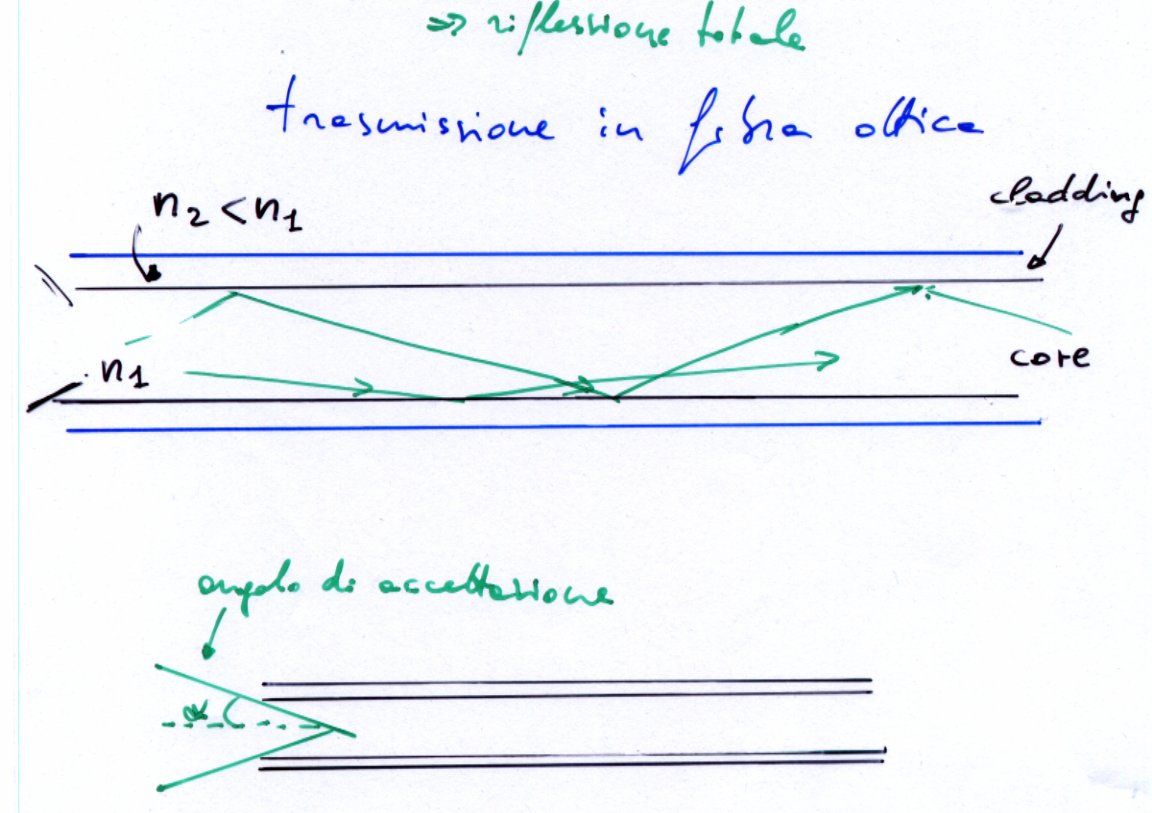 => riflessione totale
trasmissione in fibra ottica
n2 < n1
cladding
n1
core
angolo di accettazione
α